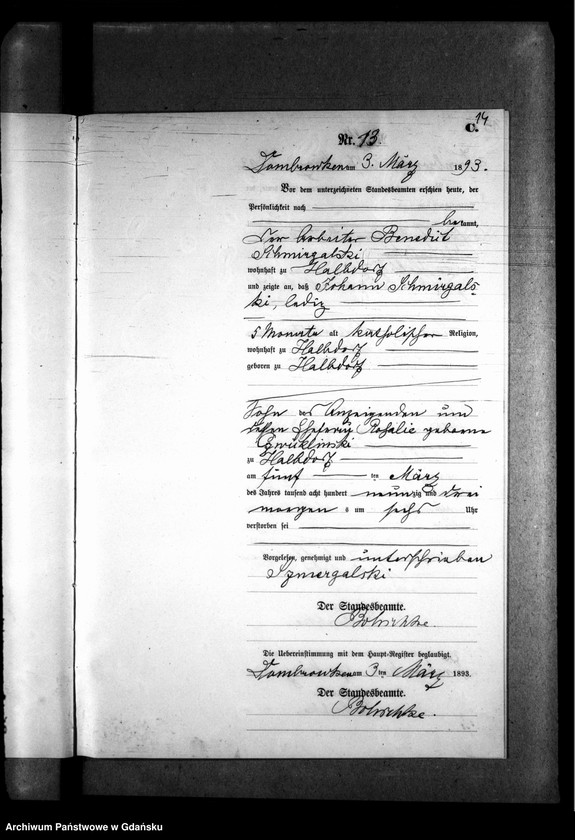 14
C.
Nr. 13.
Dombrowken am 3. März 1893.
Vor dem unterzeichneten Standesbeamten erschien heute, der
Persönlichkeit nach
bekannt,
der Arbeiter Benedict
Schmirgalski
wohnhaft zu Halbdorf
und zeigte an, daß Johann Schmirgals-
ki, ledig
5 Monate alt katholischer Religion,
wohnhaft zu Halbdorf
geboren zu Halbdorf
Sohn des Anzeigenden und
dessen Ehefrau Rosalie geborene
zu Halbdorf
am fünf ten März
des Jahres tausend acht hundert neunzig und drei
morgens um sechs Uhr
verstorben sei
Vorgelesen, genehmigt und unterschrieben
Szmergalski
Der Standesbeamte.
Die Uebereinstimmung mit dem Haupt-Register beglaubigt.
Dombrowken am 3 ten März 1893.
Der Standesbeamte.
Archiwum Państwowe w Gdańsku